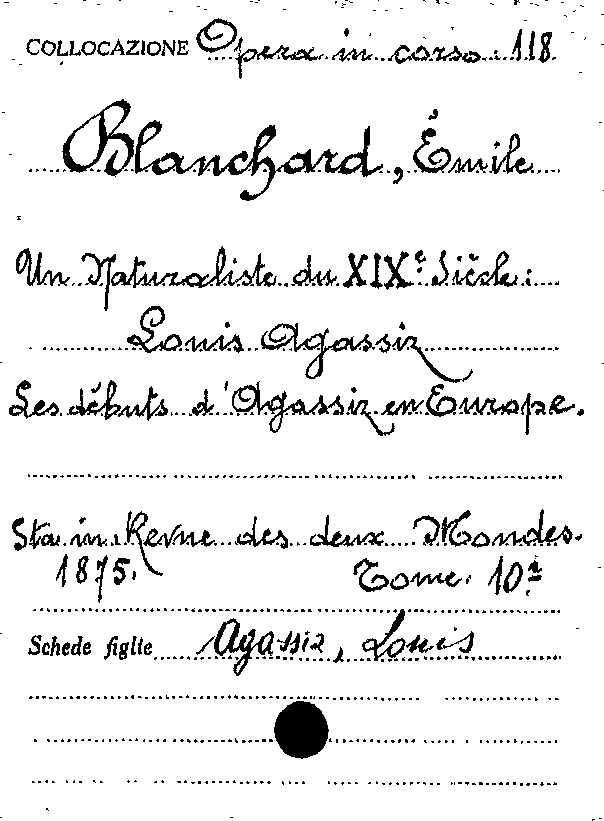 COLLOCAZIONE Opera in corso. 118
Blanchard, Émile
Un Naturaliste du XIXe Siècle:
Louis Agassiz
Les débuts d'Agassiz en Europe.
Sta in Revue des deux Mondes.
1875. Tome. 10º
Schede figlie Agassiz, Louis